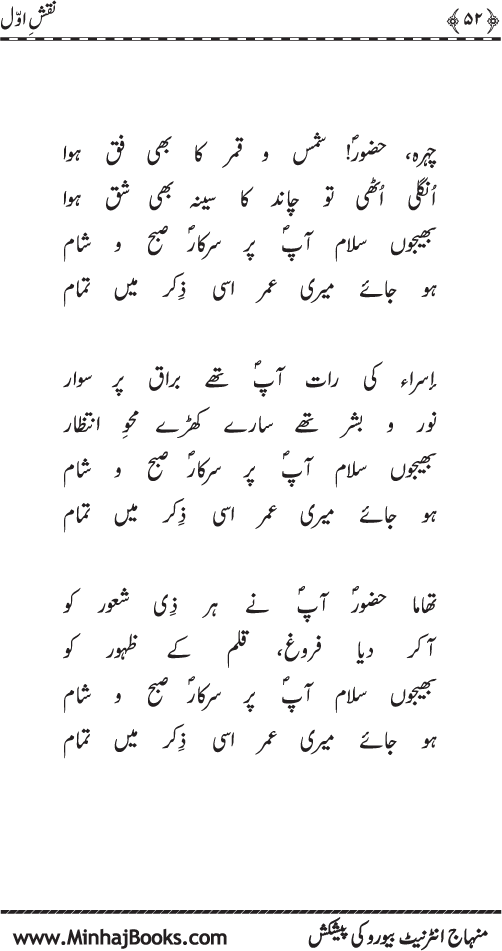 ﴿۵۲﴾
نقشِ اوّل
چہرہ، حضورؐ! شمس و قمر کا بھی فق ہوا
اُنگلی اُٹھی تو چاند کا سینہ بھی شق ہوا
بھیجوں سلام آپؐ پر سرکارؐ صبح و شام
ہو جائے میری عمر اسی ذِکر میں تمام
اِسراء کی رات آپؐ تھے براق پر سوار
نور و بشر تھے سارے کھڑے محوِ انتظار
بھیجوں سلام آپؐ پر سرکارؐ صبح و شام
ہو جائے میری عمر اسی ذِکر میں تمام
تھاما حضورؐ آپؐ نے ہر ذِی شعور کو
آکر دیا فروغ، قلم کے ظہور کو
بھیجوں سلام آپؐ پر سرکارؐ صبح و شام
ہو جائے میری عمر اسی ذِکر میں تمام
منہاج انٹرنیٹ بیورو کی پیشکش
www.MinhajBooks.com